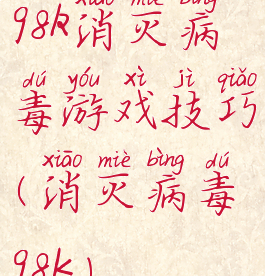 xiāo miè bìng
98k消灭病
dú yóu xì jì qiǎo
毒游戏技巧
xiāo miè bìng dú
(消灭病毒
98k)